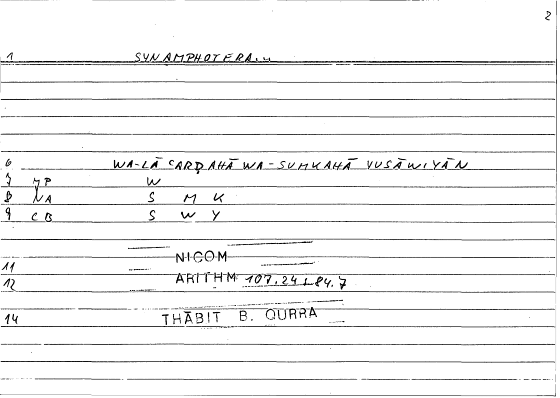 2
1 SYNAMPHOTERA..
6 WA-LĀ ʿARḌAHĀ WA-SUMKAHĀ YUSĀWIYĀN
7 JP W
8 NA S M K
9 CB S W Y
11 NICOM
12 ARITHM 107.24 84.7
14 THĀBIT B. QURRA